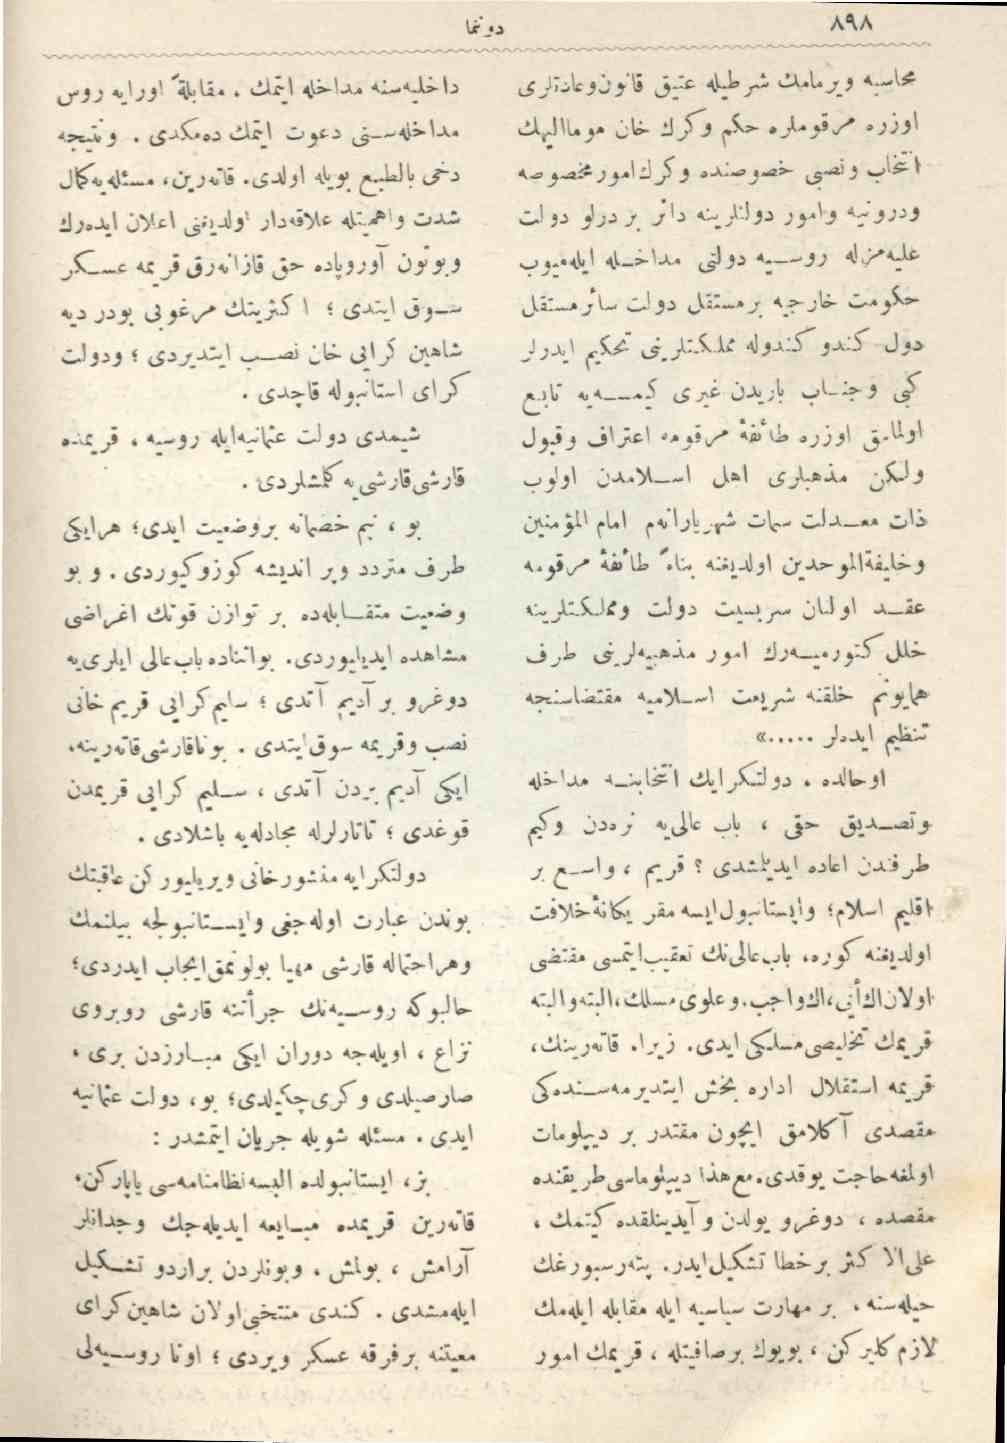 ٨٩٨
دوننما
محاسبه ویرمامك شرطیله عتیق قانون‌وعادتلری
اوزره مرقوملره حكم وكرك خان موماالیهك
انتخاب ونصبی خصوصنده وكرك‌امور مخصوصه
ودرونیه وامور دولتلرینه دائر بر درلو دولت
علیه‌مزله روسیه دولتی مداخله ایله‌میوب
حكومت خارجیه بر مستقل دولت سائر مستقل
دول كندو كندوله مملكتلرینی تحكیم ایدرلر
كبی وجناب باریدن غیری كیمسه‌یه تابع
اولمامق اوزره طائفۀ مرقومه اعتراف وقبول
ولكن مذهبلری اهل اسلامدن اولوب
ذات معدلت سمات شهریارانه‌م امام المؤمنین
وخلیفةالموحدین اولدیغنه بناءً طائفۀ مرقومه
عقد اولنان سربسیت دولت ومملكتلرینه
خلل كتورمیه‌رك امور مذهبیه‌لرینی طرف
همایونم خلقنه شریعت اسلامیه مقتضاسنجه
تنظیم ایده‌لر .....»
اوحالده ، دولتكرایك انتخابنه مداخله
وتصدیق حقی ، باب عالی‌یه نره‌دن وكیم
طرفندن اعاده ایدیلمشدی ؟ قریم ، واسع بر
اقلیم اسلام؛ وایستانبول‌ایسه مقر یكانۀ خلافت
اولدیغنه كوره، باب‌عالی‌نك تعقیب‌ایتمسی مقتضی
اولان‌اك‌أیی،اك‌واجب.وعلوی مسلك،البته‌والبته
قریمك تخلیصی مسلكی ایدی. زیرا. قاته‌رینك،
قریمه استقلال اداره بخش ایتدیرمه‌سنده‌كی
مقصدی آكلامق ایچون مقتدر بر دیپلومات
اولمغه حاجت یوقدی. مع‌هذا دیپلوماسی طریقنده
مقصده ، دوغرو یولدن وآیدینلقده كیتمك ،
علی‌الاكثر بر خطا تشكیل‌ایدر. پته‌رسبورغك
حیله‌سنه، بر مهارت سیاسیه ایله مقابله ایله‌مك
لازم كلیركن ، بویوك برصافیتله ، قریمك امور
داخلیه‌سنه مداخله ایتمك . مقابلةً اورایه روس
مداخله‌سنی دعوت ایتمك ده‌مكدی . ونتیجه
دخی بالطبع بویله اولدی. قاته‌رین، مسئله‌یه كمال
شدت واهمیتله علاقه‌دار اولدیغنی اعلان ایده‌رك
وبوتون آوروپاده حق قازانه‌رق قریمه عسكر
سوق ایتدی ؛ اكثریتك مرغوبی بودر دیه
شاهین كرایی خان نصب ایتدیردی ؛ ودولت
كرای استانبوله قاچدی .
شیمدی دولت عثمانیه‌ایله روسیه ، قریمده
قارشی‌قارشی‌یه كلمشلردی .
بو ، نیم خصمانه بروضعیت ایدی؛ هرایكی
طرف متردد وپر اندیشه كوزوكیوردی . و بو
وضعیت متقابله‌ده بر توازن قوتك اغراضی
مشاهده ایدیلیوردی. بواثناده باب‌عالی ایلری‌یه
دوغرو بر آدیم آتدی ؛ سلیم كرایی قریم خانی
نصب وقریمه سوق‌ایتدی . بوناقارشی قاته‌رینه،
ایكی آدیم بردن آتدی ، سلیم كرایی قریمدن
قوغدی ؛ تاتارلرله مجادله‌یه باشلادی .
دولتكرایه منشور خانی ویریلیوركن عاقبتك
بوندن عبارت اوله‌جغی وایستانبولجه بیلنمك
وهراحتماله قارشی مهیا بولونمق‌ایجاب ایدردی؛
حالبوكه روسیه‌نك جرأتنه قارشی روبروی
نزاع ، اویله‌جه دوران ایكی مبارزدن بری ،
صارصیلدی وكری‌چكیلدی؛ بو، دولت عثمانیه
ایدی . مسئله شویله جریان ایتمشدر :
بز، ایستانبولده البسه نظامنامه‌سی یاپاركن،
قاته‌رین قریمده مبایعه ایدیله‌جك وجدانلر
آرامش ، بولمش . وبونلردن براردو تشكیل
ایله‌مشدی . كندی منتخبی‌اولان شاهین‌كرای
معیتنه برفرقه عسكر ویردی ؛ اونا روسیه‌لی